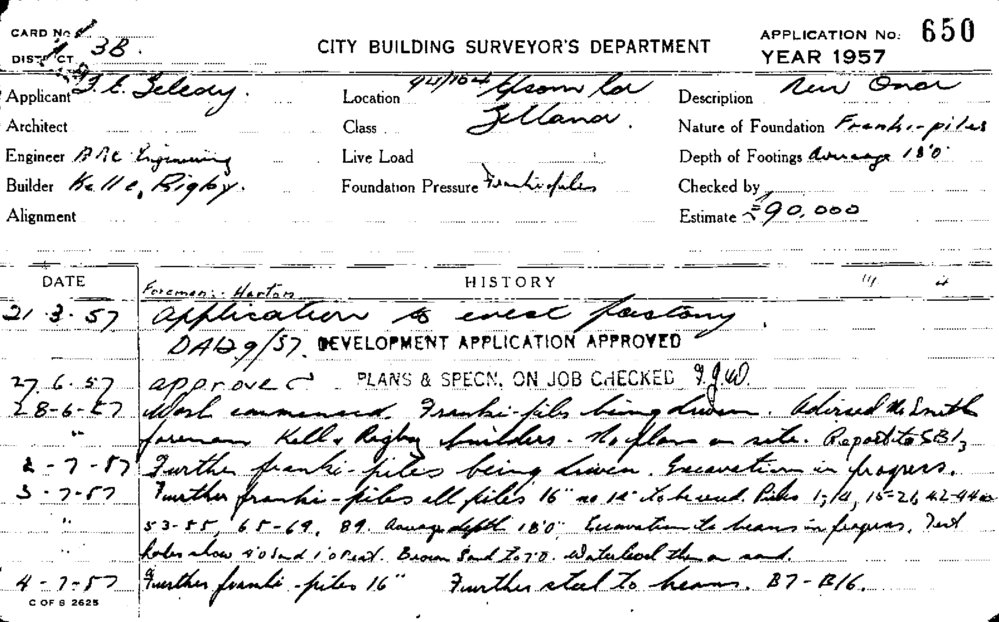 CARD No
DISTRICT 3B.
CITY BUILDING SURVEYOR'S DEPARTMENT
APPLICATION No: 650
YEAR 1957
Applicant
Location
Description New
Architect
Class Zetland.
Nature of Foundation Franki-piles
Engineer Engineering
Live Load
Depth of Footings Average 18'0"
Builder Rigby.
Foundation Pressure Franki piles
Checked by
Alignment
Estimate 90,000
DATE
HISTORY
Foreman:- Harton
21.3.57 Application to erect factory.
/57. DEVELOPMENT APPLICATION APPROVED
27.6.57 approved PLANS & SPECN, ON JOB CHECKED
28-6-57 Work commenced. Franki-piles being driven. Advised Mr Smith
" foreman Kell & Rigby builders - No plans on site. Report to
2-7-57 Further franki-piles being driven. Excavation in progress.
3-7-57 Further franki-piles all piles 16" no 14" to be used. Piles 15-21, 42-44
" 53-55, 65-69, 89. Average depth 18'0". Excavation to beams in progress. Test
holes show 4'0 sand 1'0 Peat. Brown Sand to 7'0. Waterlevel then sand.
4-7-57 Further franki-piles 16" Further steel to beams. B7-B16.
C OF S 2625